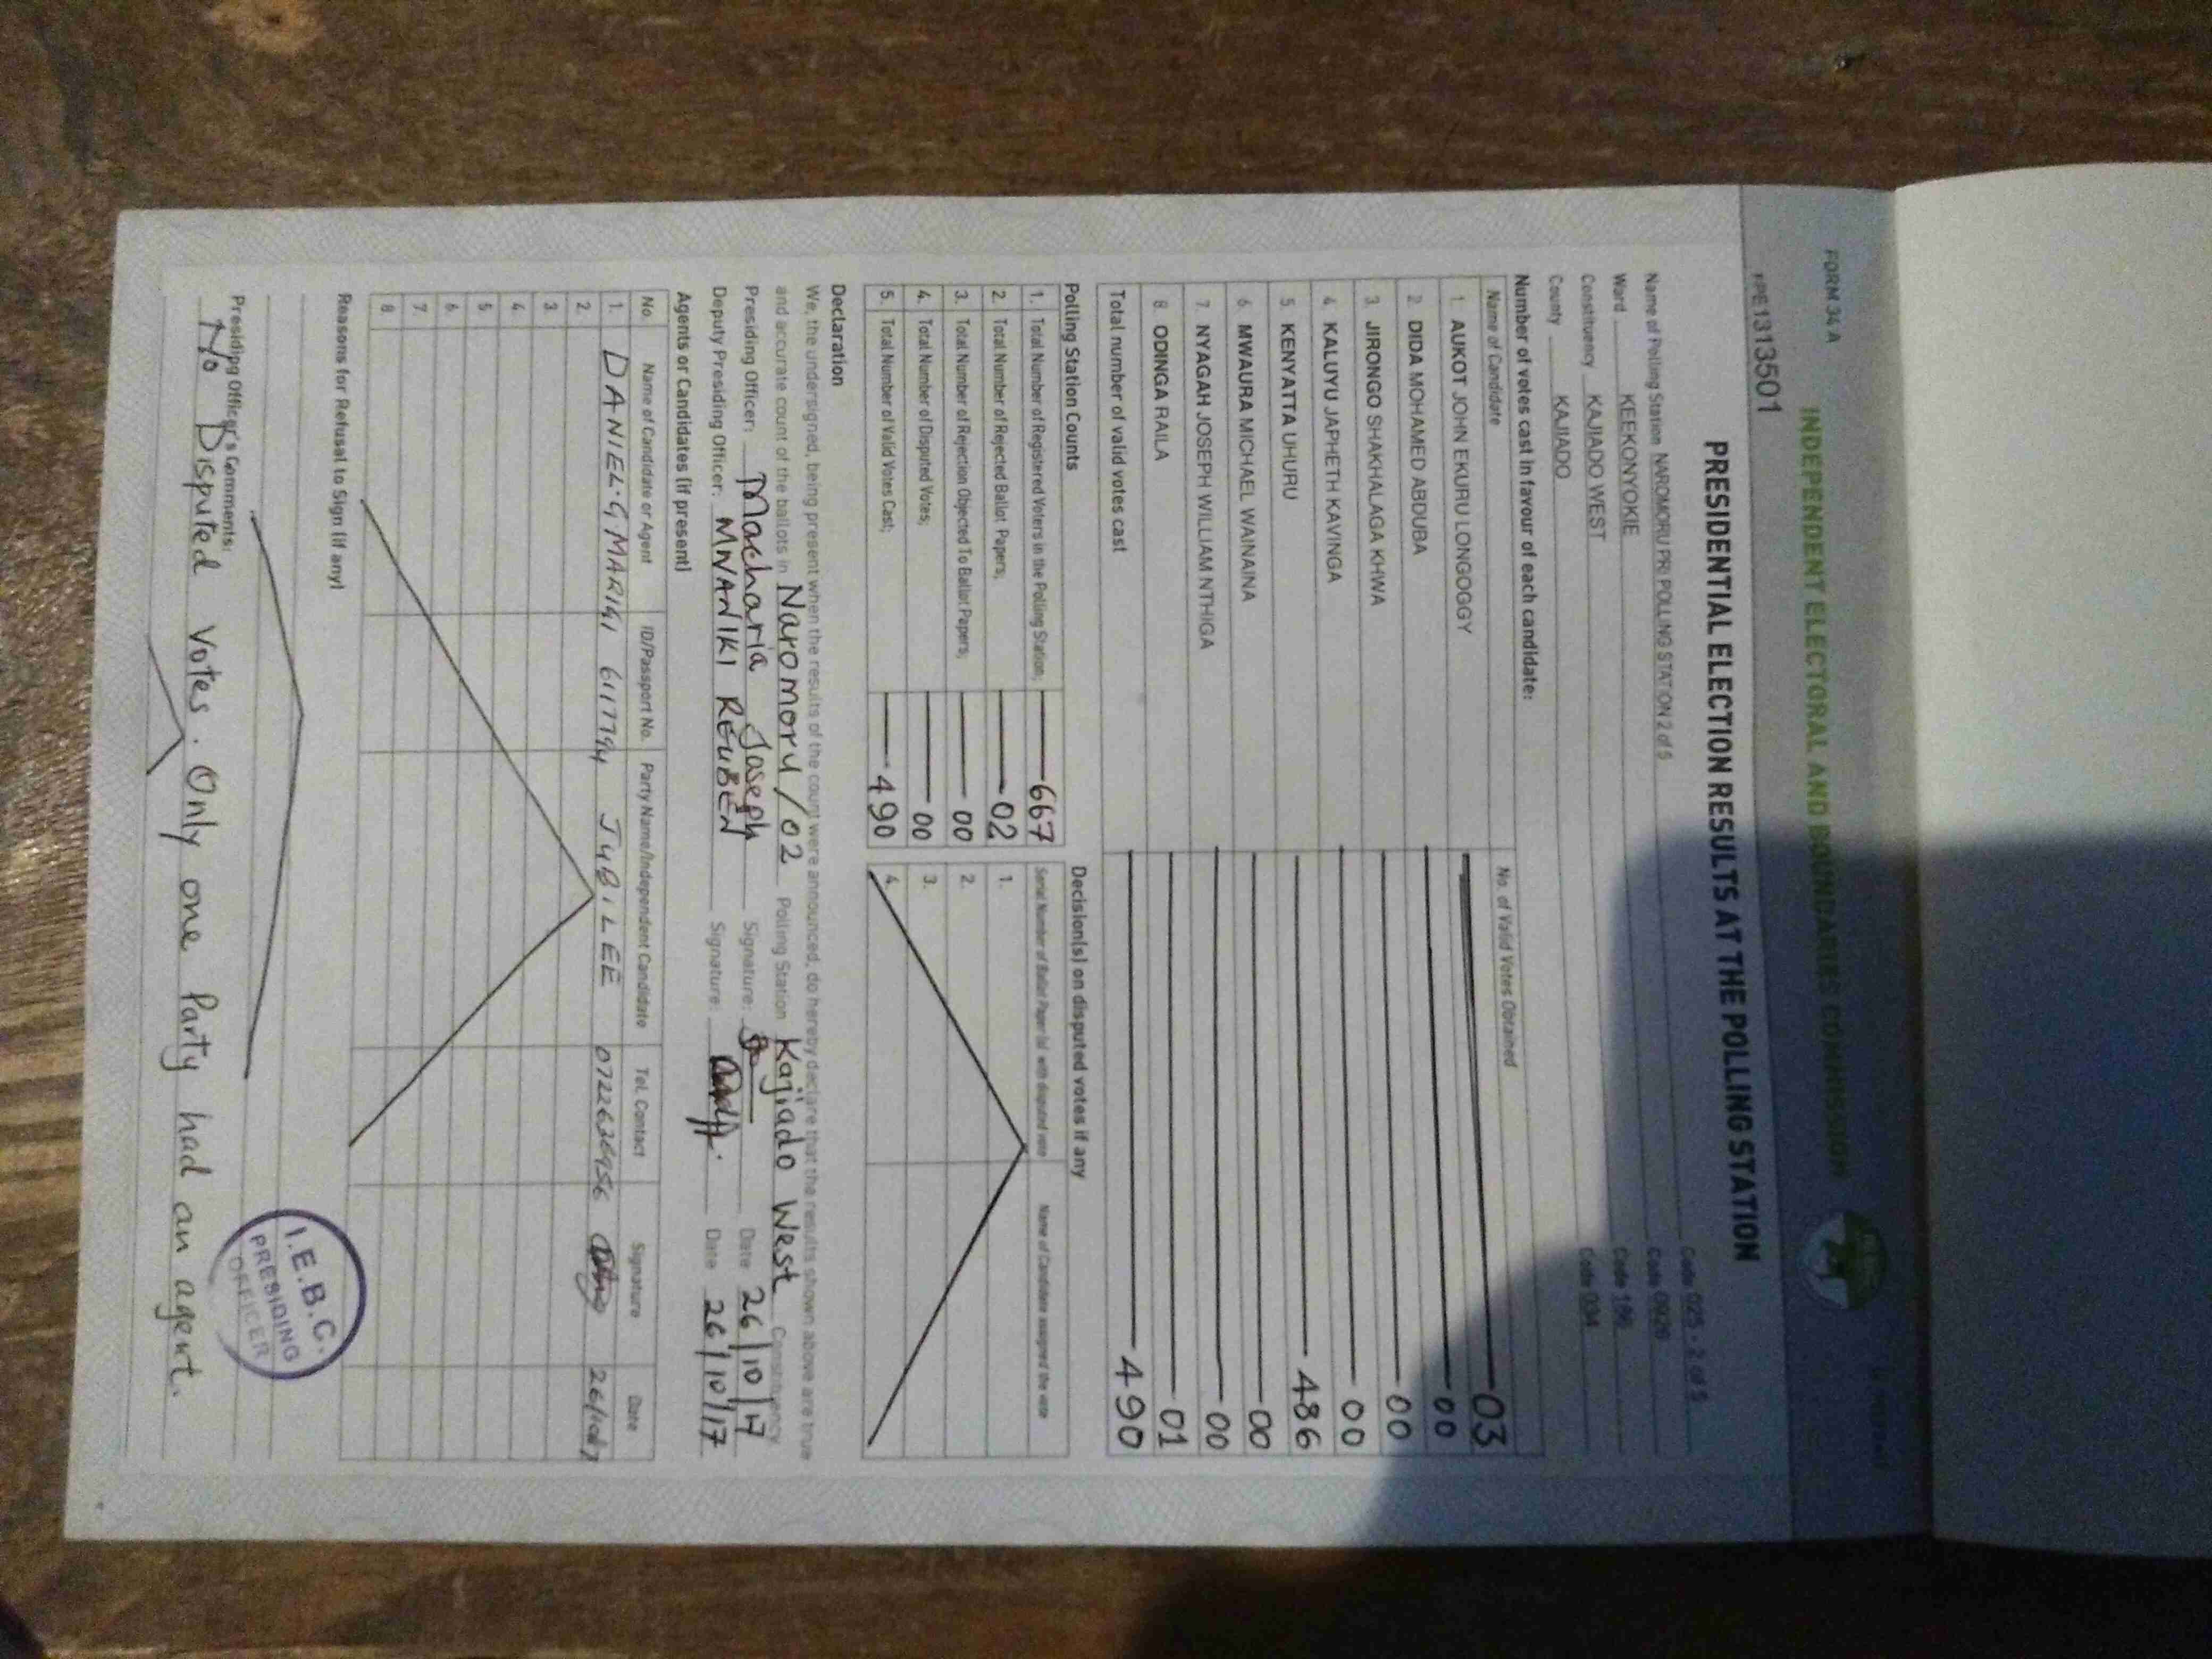 FORM 34 A
INDEPENDENT ELECTORAL AND BOUNDARIES COMMISSION
PRESIDENTIAL ELECTION RESULTS AT THE POLLING STATION
Name of Polling Station NAROMORU PRI POLLING STATION 2 of 5 Code 025 - 2 of 5
Ward KEEKONYOKIE Code 0926
Constituency KAJIADO WEST Code 186
County KAJIADO Code 034
Number of votes cast in favour of each candidate:
Name of Candidate No. of Valid Votes Obtained
1. AUKOT JOHN EKURU LONGOGGY 03
2. DIDA MOHAMED ABDUBA 00
3. JIRONGO SHAKHALAGA KHWA 00
4. KALUYU JAPHETH KAVINGA 00
5. KENYATTA UHURU 486
6. MWAURA MICHAEL WAINAINA 00
7. NYAGAH JOSEPH WILLIAM NTHIGA 00
8. ODINGA RAILA 01
Total number of valid votes cast 490
Polling Station Counts
1. Total Number of Registered Voters in the Polling Station; 667
2. Total Number of Rejected Ballot Papers; 02
3. Total Number of Rejection Objected To Ballot Papers; 00
4. Total Number of Disputed Votes; 00
5. Total Number of Valid Votes Cast; 490
Decision(s) on disputed votes if any
Serial Number of Ballot Paper (s) with disputed vote Name of Candidate assigned the vote
1.
2.
3.
4.
Declaration
We, the undersigned, being present when the results of the count were announced, do hereby declare that the results shown above are true
and accurate count of the ballots in Naromoru/02 Polling Station Kajiado West Constituency
Presiding Officer: Macharia Joseph Signature: Date 26/10/17
Deputy Presiding Officer: MWANIKI REUBEN Signature: Date 26/10/17
Agents or Candidates (if present)
No. Name of Candidate or Agent ID/Passport No. Party Name/Independent Candidate Tel. Contact Signature Date
1. DANIEL.G MARIGI 6117794 JUBILEE
2.
3
4
5
6
7
8
Reasons for Refusal to Sign (if any)
Presiding Officer's Comments:
No Disputed Votes. Only one Party had an agent.
I.E.B.C.
PRESIDING
OFFICER